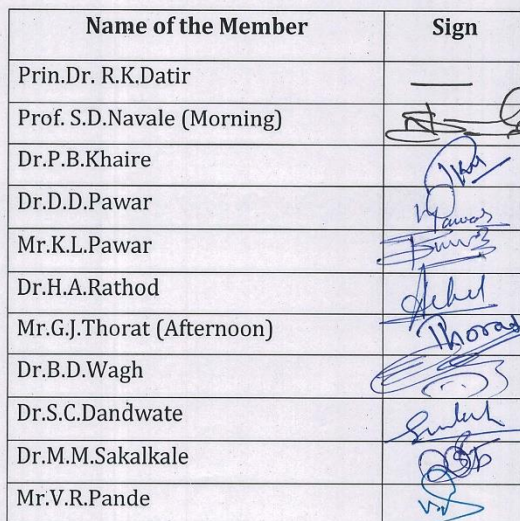 Name of the Member Sign
Prin.Dr. R.K.Datir
Prof. S.D.Navale (Morning)
Dr.P.B.Khaire
Dr.D.D.Pawar Pawar
Mr.K.L.Pawar
Dr.H.A.Rathod
Mr.G.J.Thorat (Afternoon) Thorat
Dr.B.D.Wagh
Dr.S.C.Dandwate
Dr.M.M.Sakalkale
Mr.V.R.Pande